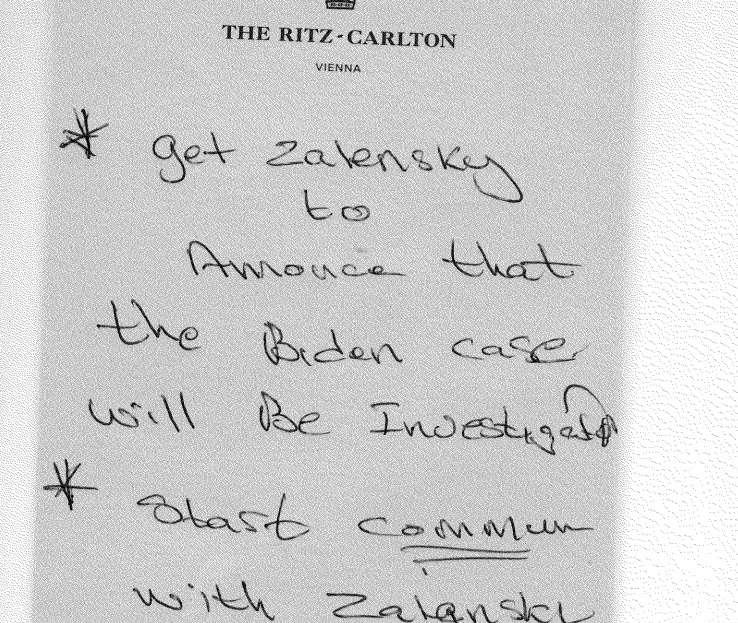 THE RITZ-CARLTON
VIENNA
* get Zalensky
to
Annouce that
the Biden case
will Be Investigated
* Start commun
with Zalenski